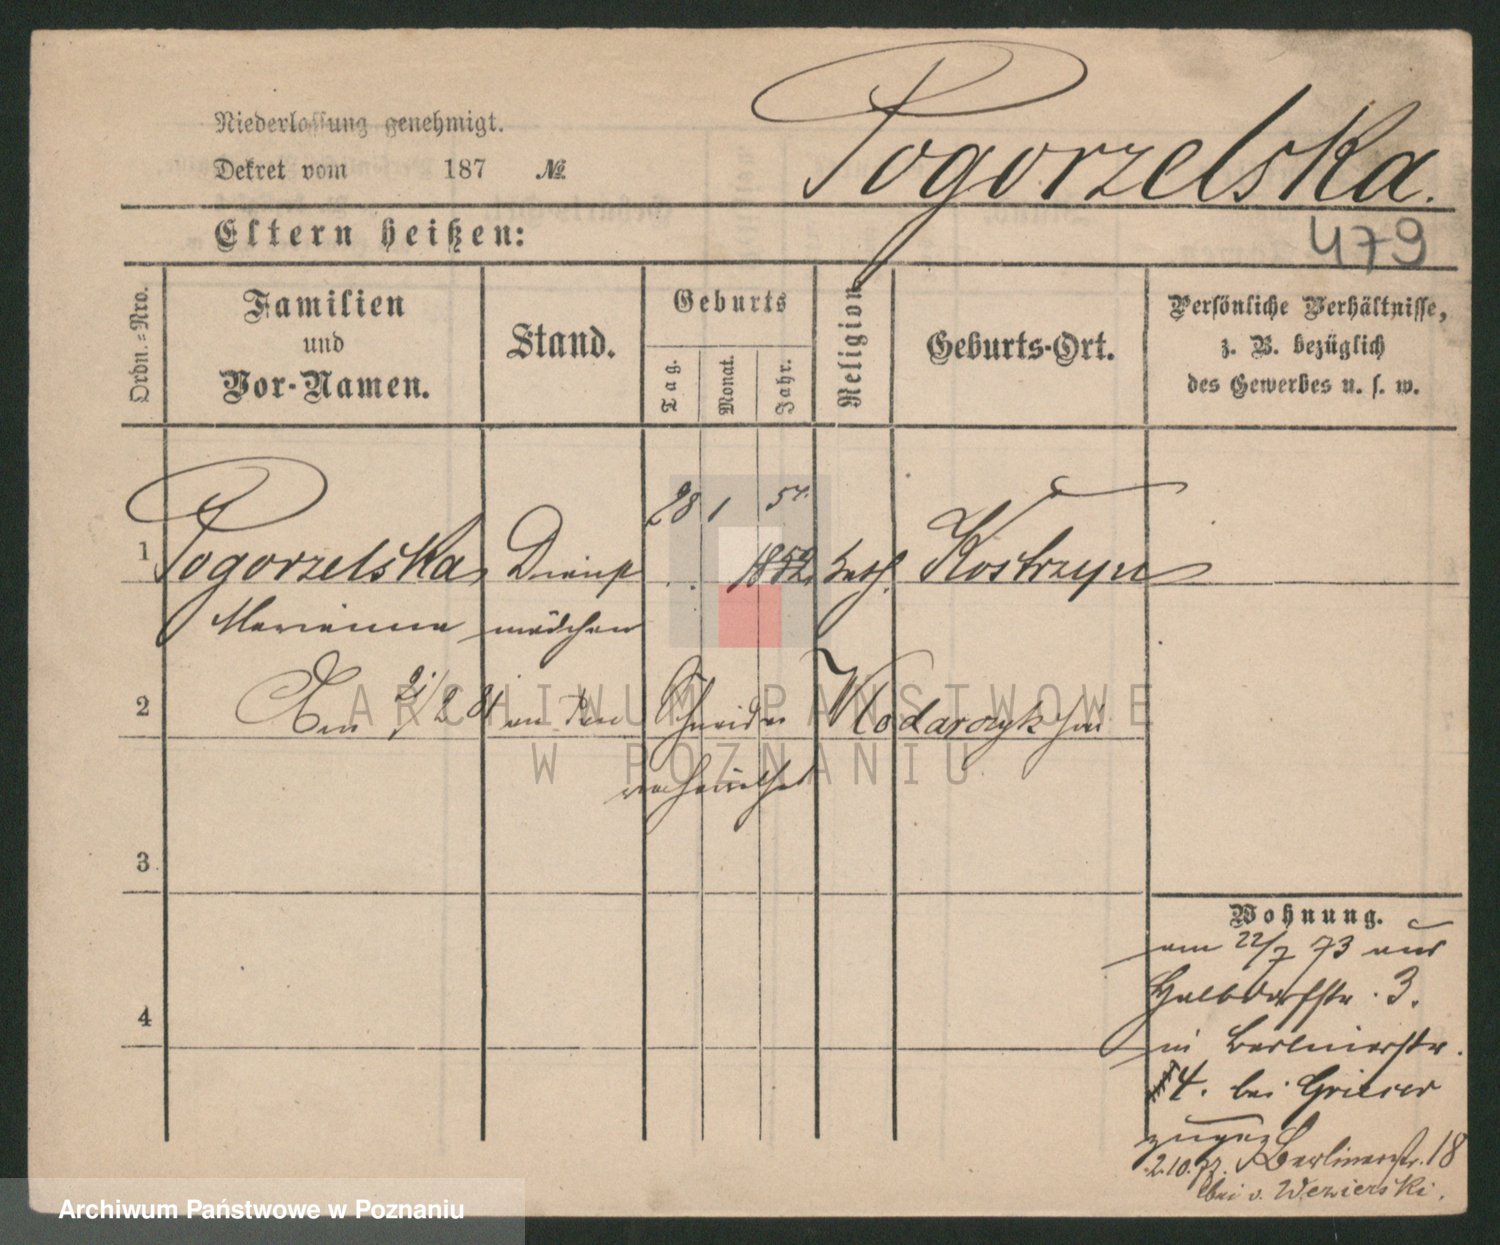 Niederlassung genehmigt.
Dekret vom 187 №
Pogorzelska.
Eltern heißen:
479
Ordn.=Nro.
Familien
und
Vor-Namen.
Stand.
Geburts
Tag.
Monat.
Jahr.
Religion
Geburts-Ort.
Persönliche Verhältnisse,
z. B. bezüglich
des Gewerbes u. s. w.
28 1 57.
1 Pogorzelska Dienst kath. Kostrzyn
Marianna mädchen
2 Am 2 an den Schneider Wlodarczyk
verheirathet
3
4
ARCHIWUM PAŃSTWOWE
W POZNANIU
Wohnung.
am 22/7 73 aus
Halbdorfstr. 3.
in Berlinerstr.
4. bei Griever
zugez
2.10. Berlinerstr. 18
bei v. Wewierski.
Archiwum Państwowe w Poznaniu